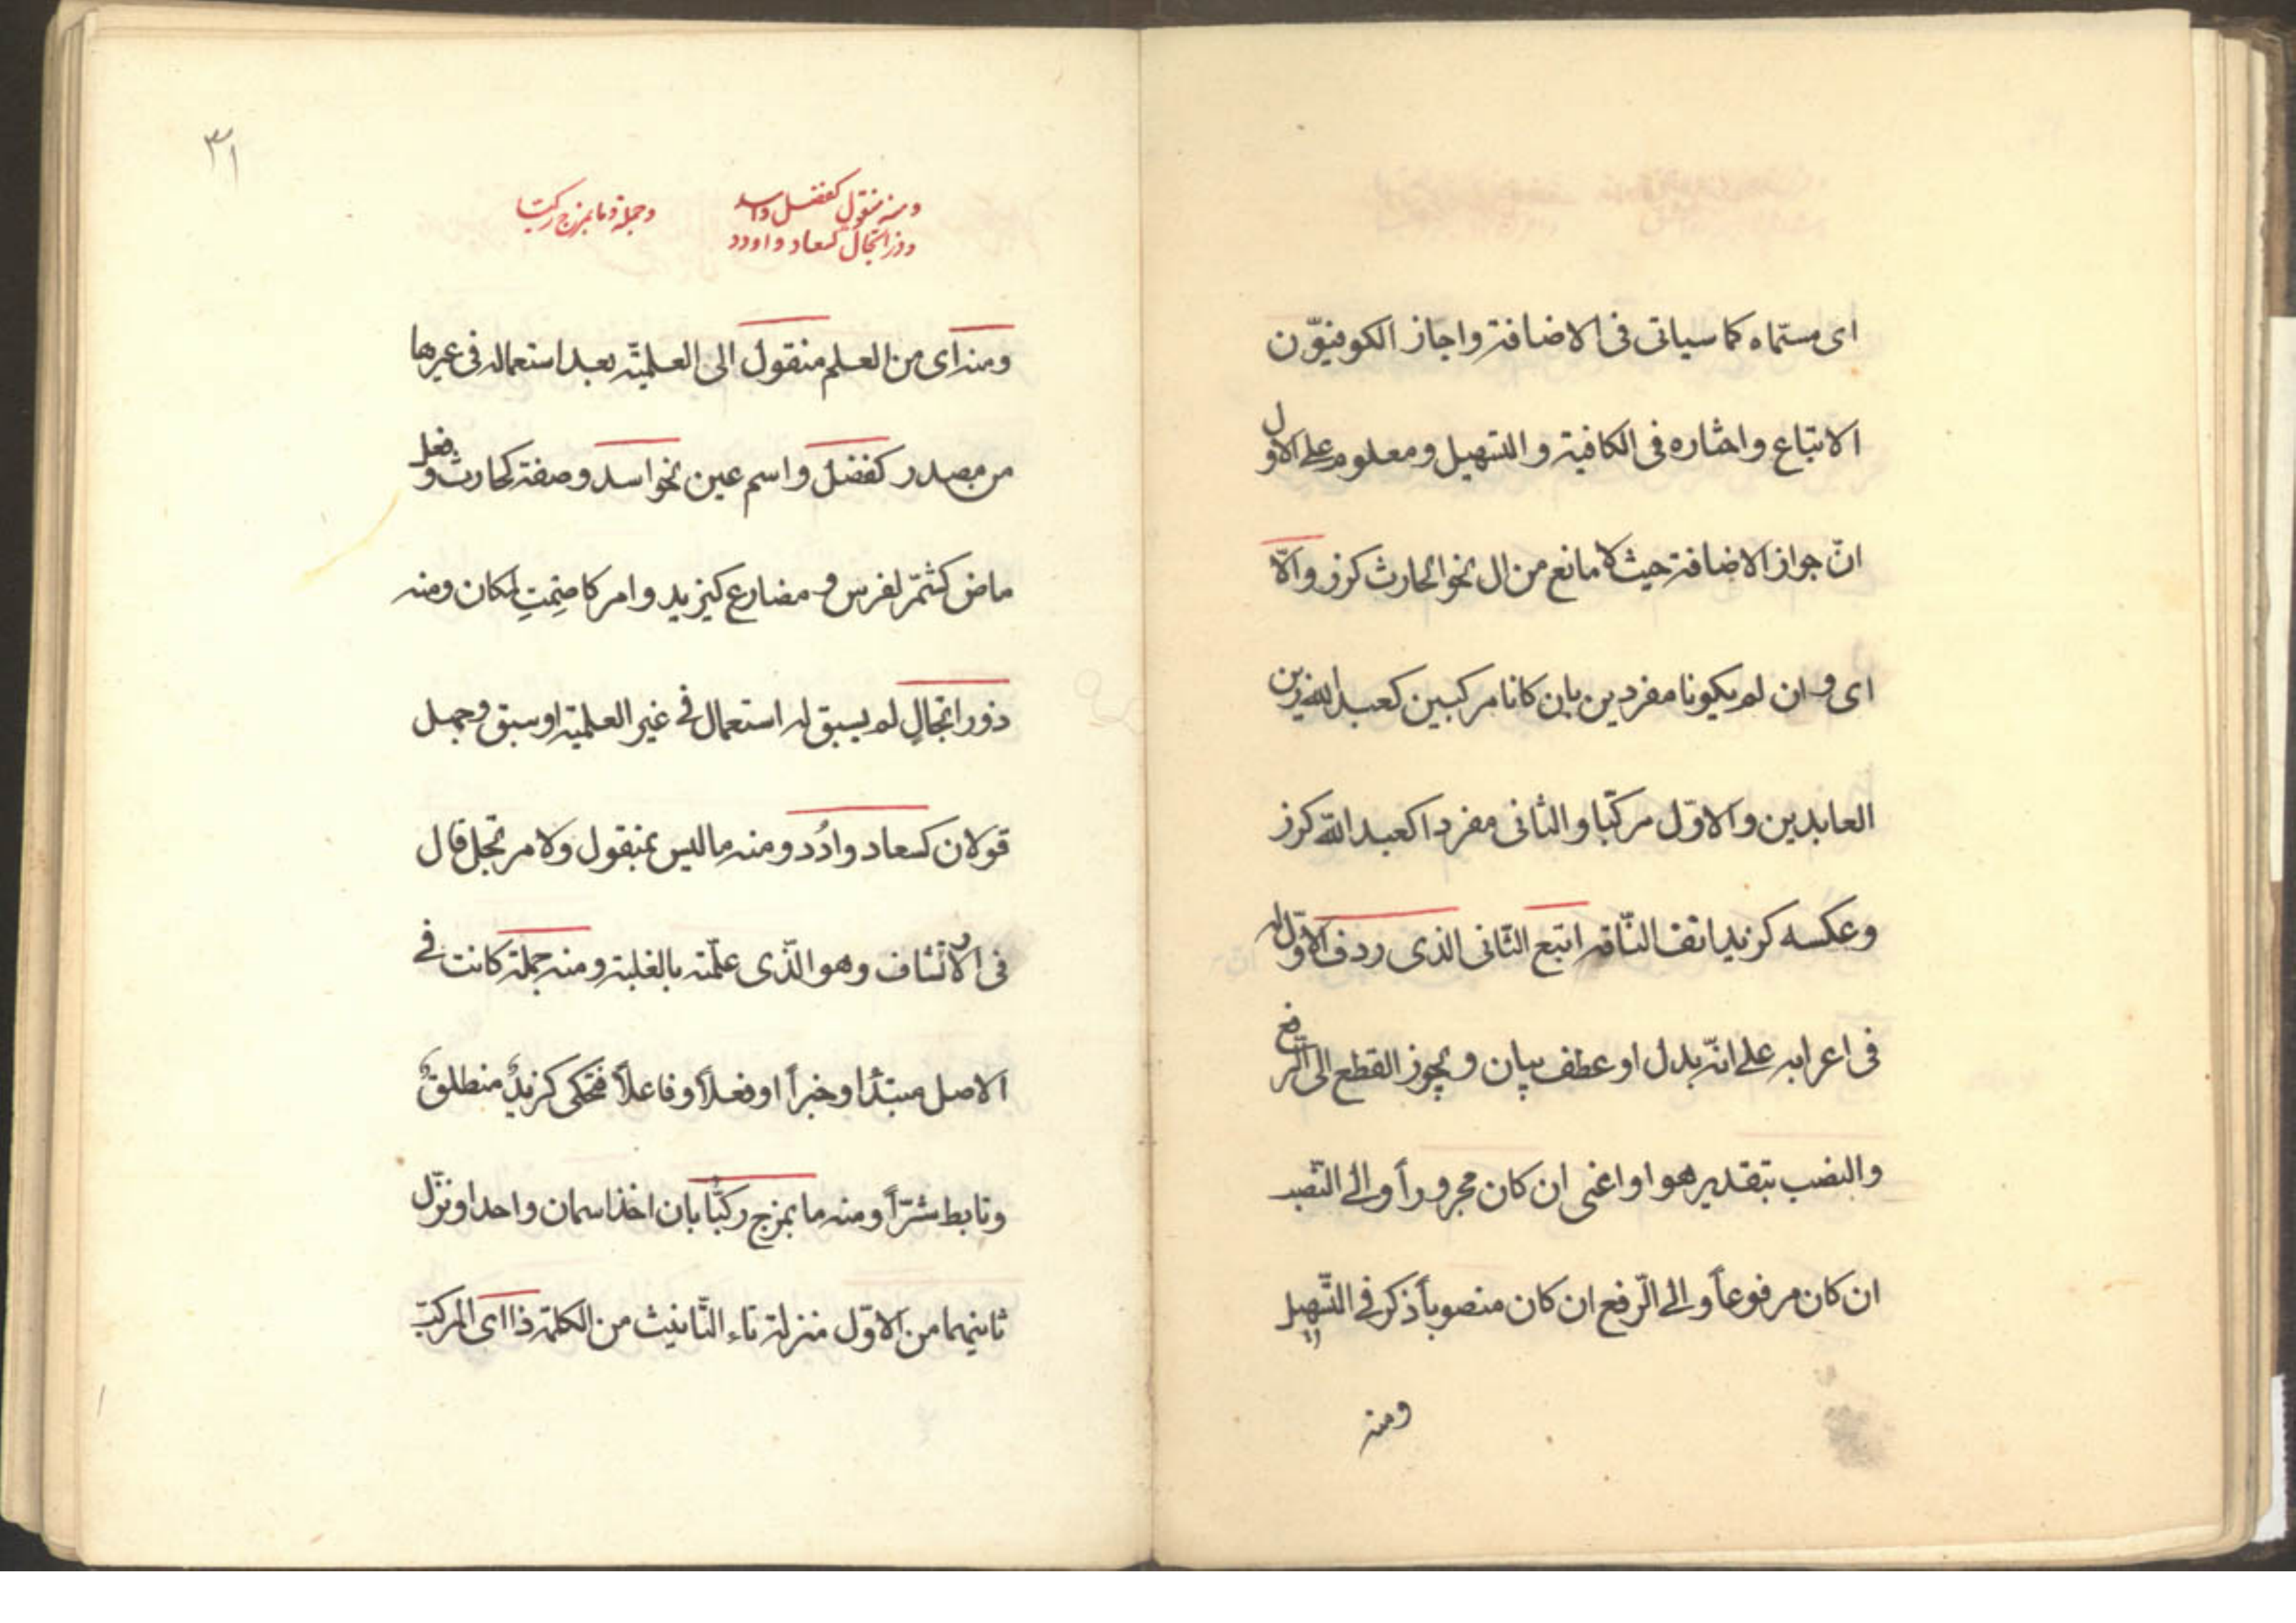 اى مسمّاه كما سياتى فى الاضافة واجاز الكوفيوّن
الاتباع واختاره فى الكافية و التسهيل ومعلوم على الاول
انّ جواز الاضافة حيث لا مانع من ال نحو الحارث كرز والّا
اى و ان لم يكونا مفردين بان كانا مركبين كعبد الله زين
العابدين والاوّل مركبّا والثانى مفردا كعبد الله كرز
وعكسه كزيد انف النّاقه اتبع الثّانى الذى ردف الاوّل له
فى اعرابه على انّه بدل او عطف بيان و يجوز القطع الى الرفع
والنصب بتقدير هو او اعنى ان كان مجروراً والى النّصب
ان كان مرفوعاً والى الرّفع ان كان منصوباً ذكر فى التّسهيل
ومنه
٣١
ومنه منقول كفضل واسد
وذو ارتجال كسعاد و اودد
وجملة وما بمزج ركبّا
ومنه اى من العلم منقول الى العلميّة بعد استعماله فى غيرها
من مصدر كفضل و اسم عين نحو اسد وصفة كحارث و فعل
ماض كشمّر لفرس و مضارع كيزيد و امر كاصمِتِ لمكان ومنه
ذور اتجالٍ لم يسبق له استعمال فى غير العلمية او سبق و جهل
قولان كسعاد و ادُد ومنه ما ليس بمنقول ولا مرتجل قال
فى الارتشاف وهو الّذى علمّته بالغلبة ومنه جملة كانت فى
الاصل مبتدأ او خبراً او فعلاً و فاعلاً فتحكى كزيدٌ منطلقٌ
وتابط شرّاً ومنه ما بمزج ركبّا بان اخذ اسمان واحدا و نزّل
ثانيهما من الاوّل منزلة تاء التّانيث من الكلمة ذا اى المركبّ